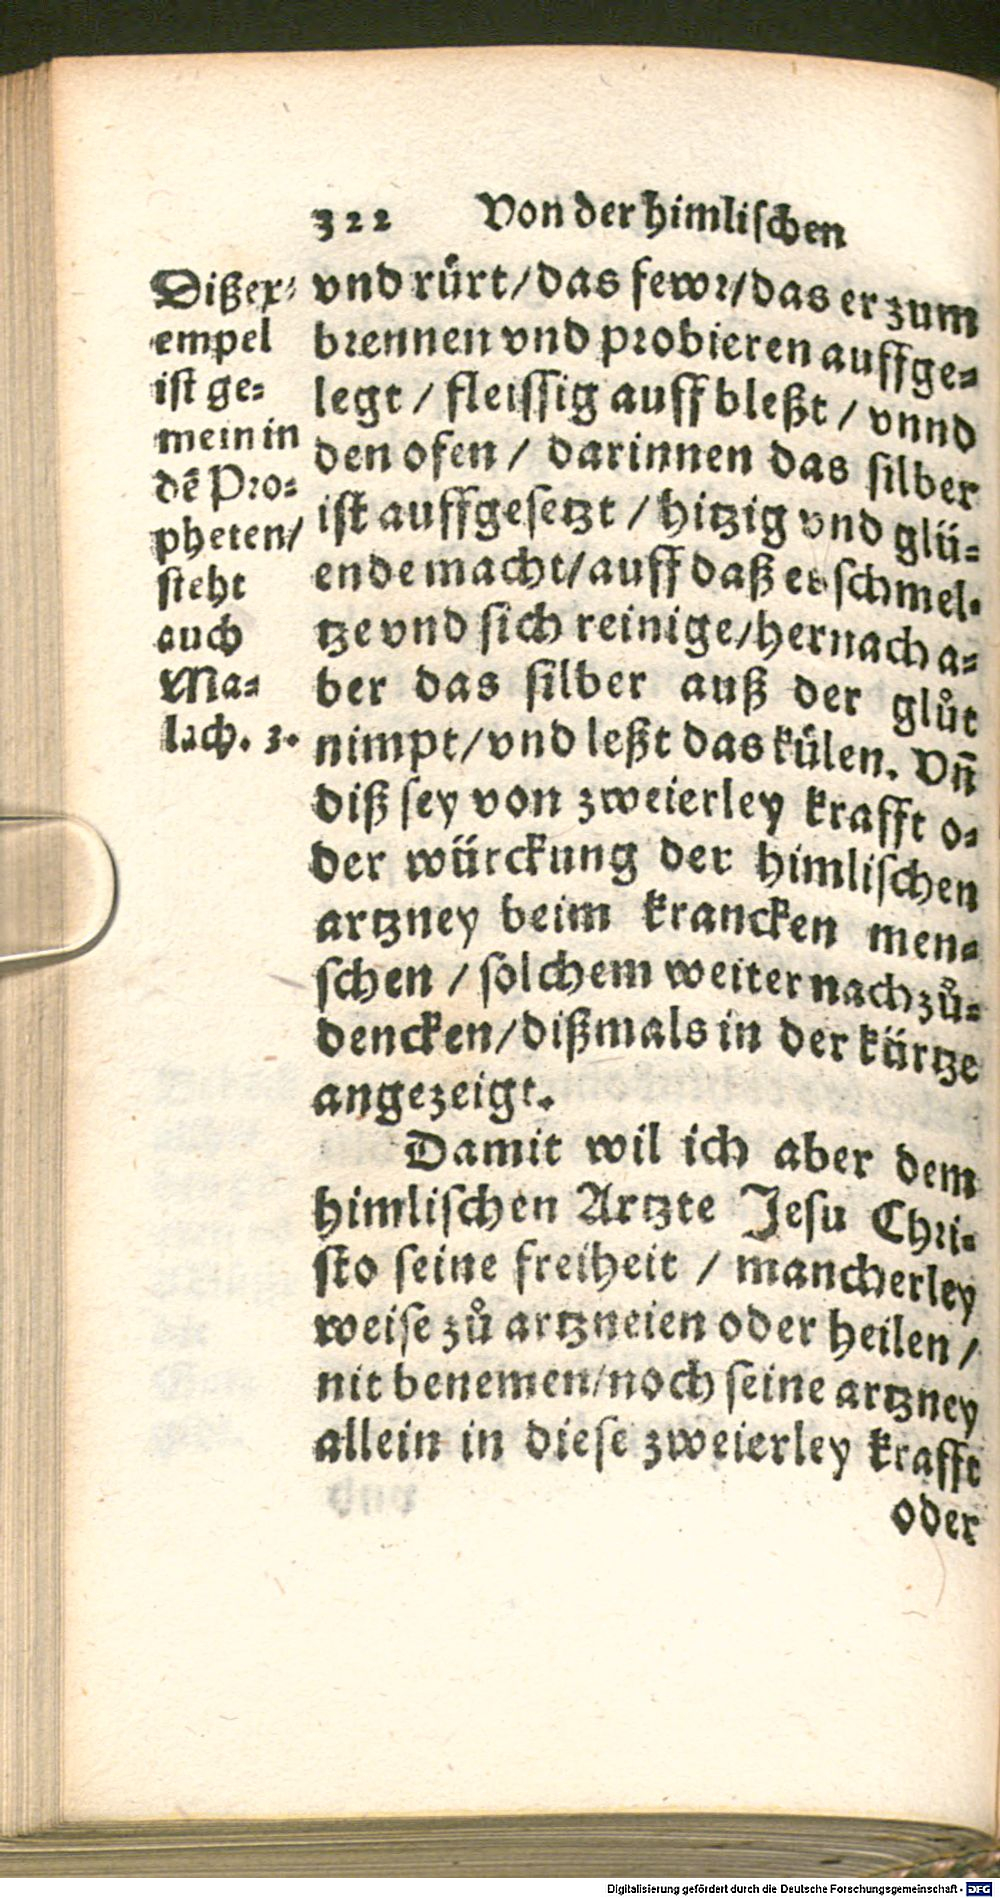 322 Von der himliſchen
Dißex⸗
empel
iſt ge⸗
mein in
dē Pro⸗
pheten/
ſteht
auch
Ma⸗
lach. 3.
vnd rürt/das fewr/das er zum
brennen vnd probieren auffge⸗
legt / fleiſſig auff bleßt / vnnd
den ofen / darinnen das ſilber
iſt auffgeſetzt / hitzig vnd glü⸗
ende macht/auff daß es ſchmel⸗
tze vnd ſich reinige/hernach a⸗
ber das ſilber auß der glůt
nimpt/vnd leßt das külen. Vñ
diß ſey von zweierley krafft o⸗
der würckung der himliſchen
artzney beim krancken men⸗
ſchen / ſolchem weiter nach zů⸗
dencken/dißmals in der kürtze
angezeigt.
Damit wil ich aber dem
himliſchen Artzte Jeſu Chri⸗
ſto ſeine freiheit / mancherley
weiſe zů artzneien oder heilen /
nit benemen/noch ſeine artzney
allein in dieſe zweierley krafft
oder
Digitalisierung gefördert durch die Deutsche Forschungsgemeinschaft - DFG